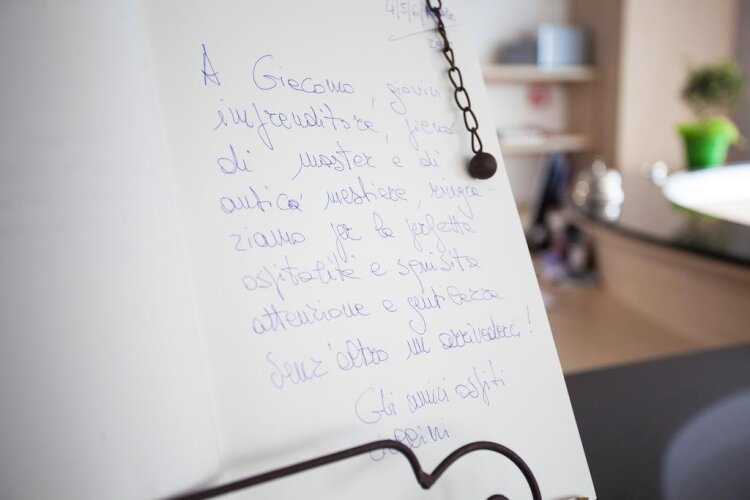 4/5/6/
A Giacomo, giovin
imprenditore, pieno
di master e di
antico mestiere, ringra-
ziamo per la perfetta
ospitalità e squisita
attenzione e gentilezza
Senz'altro un arrivederci!
Gli amici ospiti